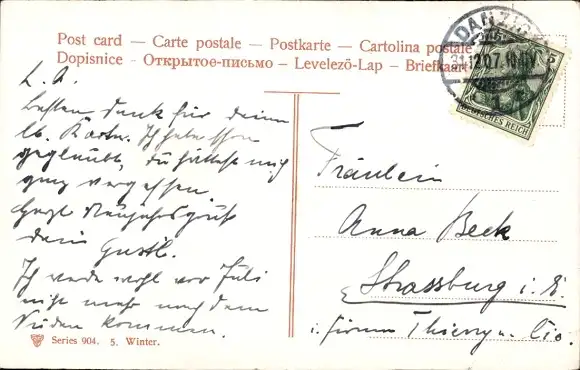 Post card — Carte postale — Postkarte — Cartolina postale
Dopisnice - Открытое-письмо - Levelező-Lap - Briefkaart
DANZIG
31.12.07.
5
DEUTSCHES REICH
L. A.
Besten Dank für deine
lb. Karte. Ich habe schon
geglaubt, du hättest mich
ganz vergessen
Herzl Neujahrsgrüße
dein Gustl.
Ich werde wohl vor Juli
nicht mehr nach dem
Süden kommen.
Fräulein
Anna Beck
Strassburg i. E.
i. Firma Thierry u. Cio.
Series 904. 5. Winter.